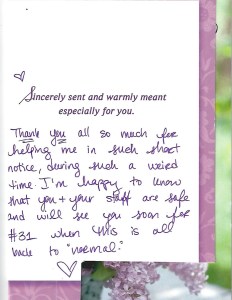 Sincerely sent and warmly meant
especially for you.
Thank you all so much for
helping me in such short
notice, during such a weird
time. I'm happy to know
that you + your staff are safe
and will see you soon for
#31 when this is all
back to "normal."